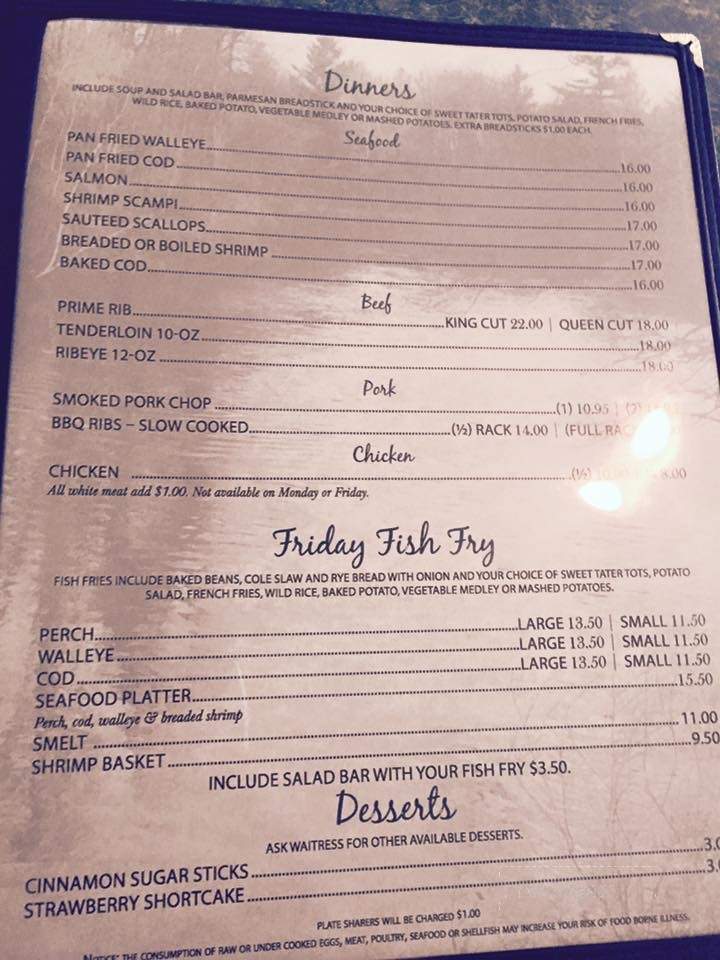 Dinners
INCLUDE SOUP AND SALAD BAR, PARMESAN BREADSTICK AND YOUR CHOICE OF SWEET TATER TOTS, POTATO SALAD, FRENCH FRIES,
WILD RICE, BAKED POTATO, VEGETABLE MEDLEY OR MASHED POTATOES. EXTRA BREADSTICKS $1.00 EACH.
Seafood
PAN FRIED WALLEYE 16.00
PAN FRIED COD 16.00
SALMON 16.00
SHRIMP SCAMPI 17.00
SAUTEED SCALLOPS 17.00
BREADED OR BOILED SHRIMP 17.00
BAKED COD 16.00
Beef
PRIME RIB KING CUT 22.00 | QUEEN CUT 18.00
TENDERLOIN 10-OZ 18.00
RIBEYE 12-OZ 18.00
Pork
SMOKED PORK CHOP (1) 10.95 |
BBQ RIBS – SLOW COOKED (½) RACK 14.00 | (FULL
Chicken
CHICKEN
All white meat add $1.00. Not available on Monday or Friday.
Friday Fish Fry
FISH FRIES INCLUDE BAKED BEANS, COLE SLAW AND RYE BREAD WITH ONION AND YOUR CHOICE OF SWEET TATER TOTS, POTATO
SALAD, FRENCH FRIES, WILD RICE, BAKED POTATO, VEGETABLE MEDLEY OR MASHED POTATOES.
PERCH LARGE 13.50 | SMALL 11.50
WALLEYE LARGE 13.50 | SMALL 11.50
COD LARGE 13.50 | SMALL 11.50
SEAFOOD PLATTER 15.50
Perch, cod, walleye & breaded shrimp
SMELT 11.00
SHRIMP BASKET 9.50
INCLUDE SALAD BAR WITH YOUR FISH FRY $3.50.
Desserts
ASK WAITRESS FOR OTHER AVAILABLE DESSERTS.
CINNAMON SUGAR STICKS
STRAWBERRY SHORTCAKE
PLATE SHARERS WILL BE CHARGED $1.00
NOTICE: THE CONSUMPTION OF RAW OR UNDER COOKED EGGS, MEAT, POULTRY, SEAFOOD OR SHELLFISH MAY INCREASE YOUR RISK OF FOOD BORNE ILLNESS.